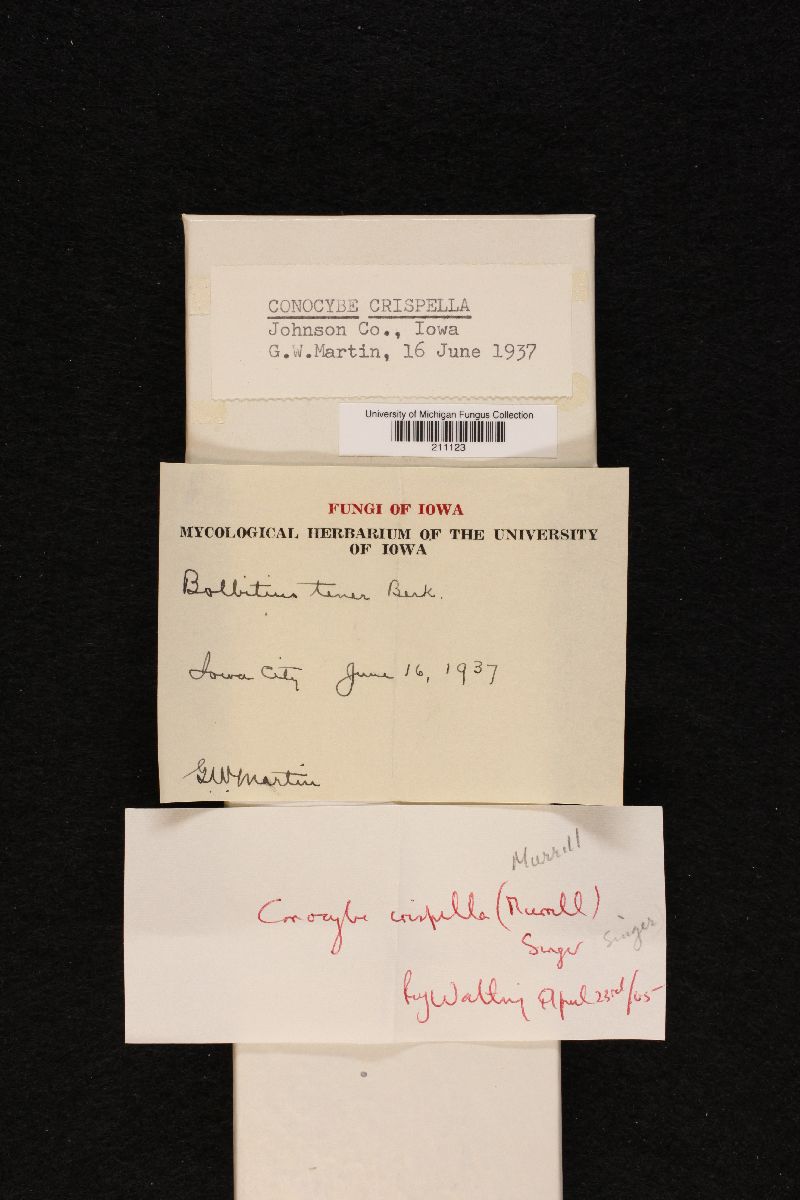 CONOCYBE CRISPELLA
Johnson Co., Iowa
G.W.Martin, 16 June 1937
University of Michigan Fungus Collection
211123
FUNGI OF IOWA
MYCOLOGICAL HERBARIUM OF THE UNIVERSITY
OF IOWA
Bolbitius tener Berk.
Iowa City June 16, 1937
G.W. Martin
Murrill
Conocybe crispella (Murrill)
Singer Singer
Roy Watling April 23rd/65